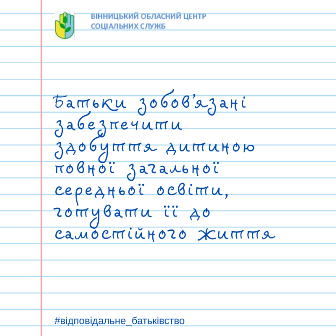 ВІННИЦЬКИЙ ОБЛАСНИЙ ЦЕНТР
СОЦІАЛЬНИХ СЛУЖБ
Батьки зобов'язані
забезпечити
здобуття дитиною
повної загальної
середньої освіти,
готувати її до
самостійного життя
#відповідальне_батьківство